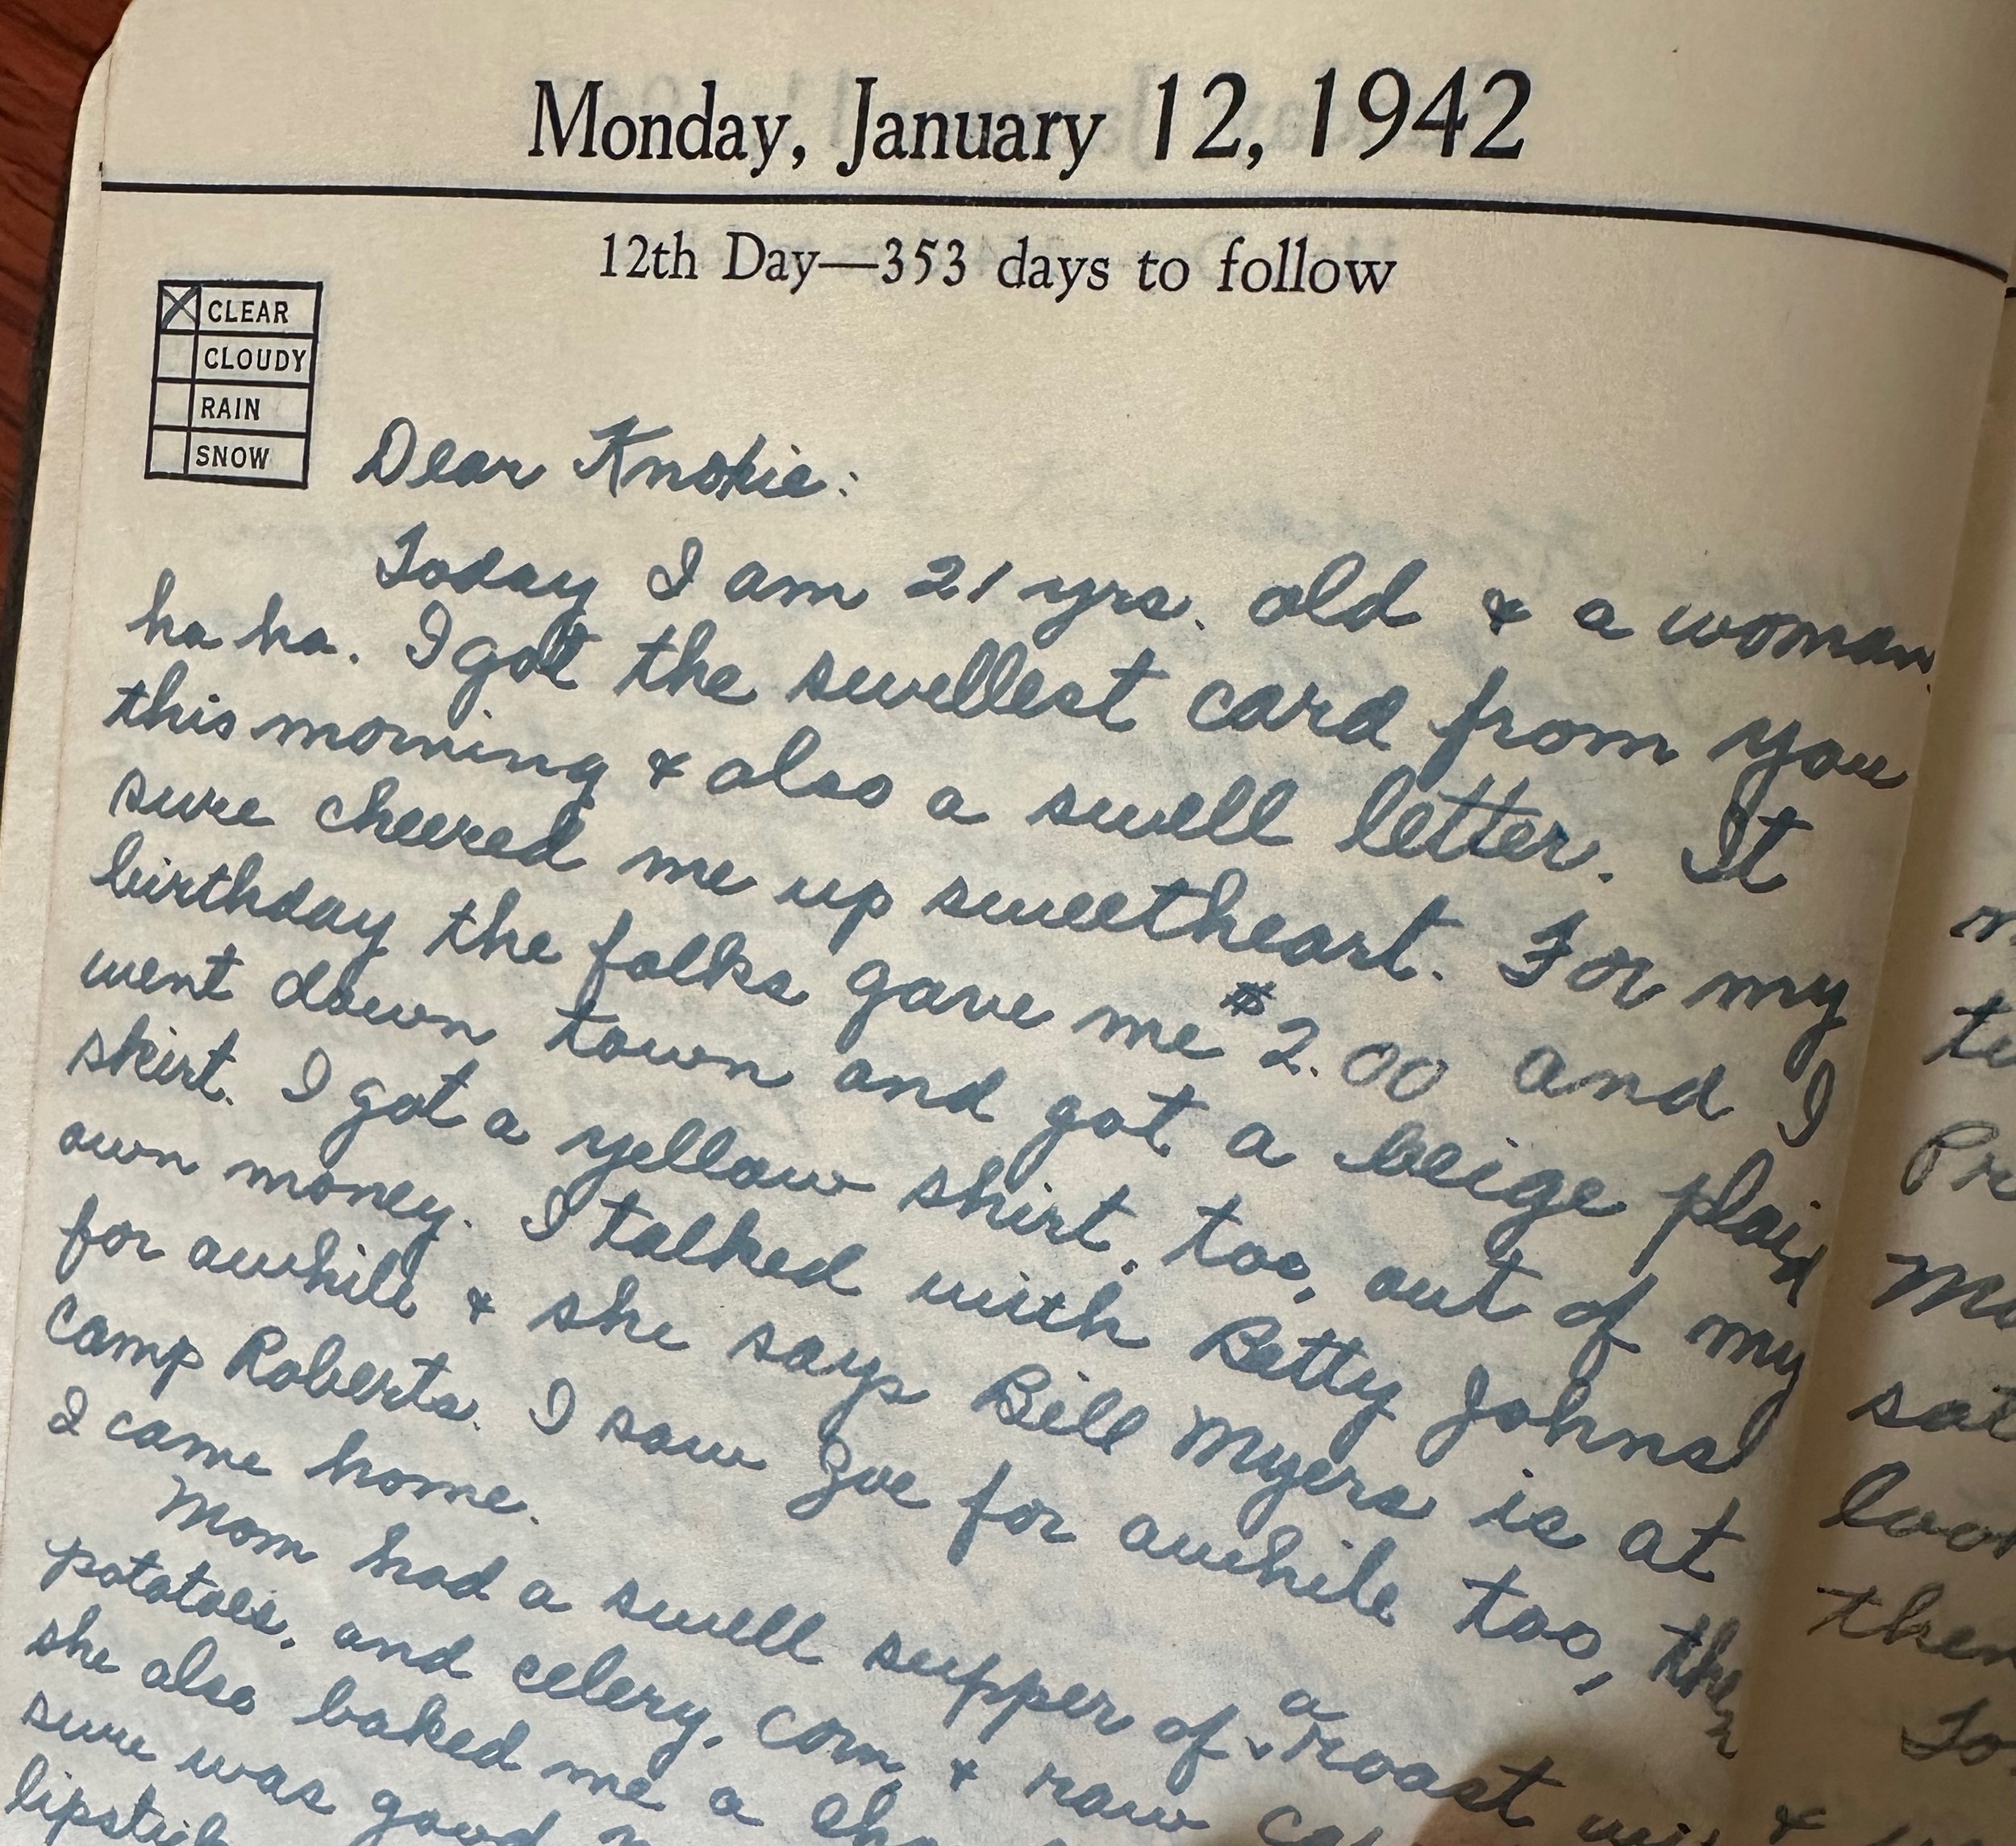 Monday, January 12, 1942
12th Day—353 days to follow
CLEAR
CLOUDY
RAIN
SNOW
Dear Knokie:
Today I am 21 yrs. old & a woman.
ha ha. I got the swellest card from you
this morning & also a swell letter. It
sure cheered me up sweetheart. For my
birthday the folks gave me $2.00 and I
went down town and got a beige plaid
skirt. I got a yellow shirt, too, out of my
own money. I talked with Betty Johns
for awhile & she says Bill Myers is at
Camp Roberts. I saw Zoe for awhile too, then
I came home.
Mom had a swell supper of a roast
potatoes, and celery, corn, & raw
she also baked me a
sure was good
lipstick